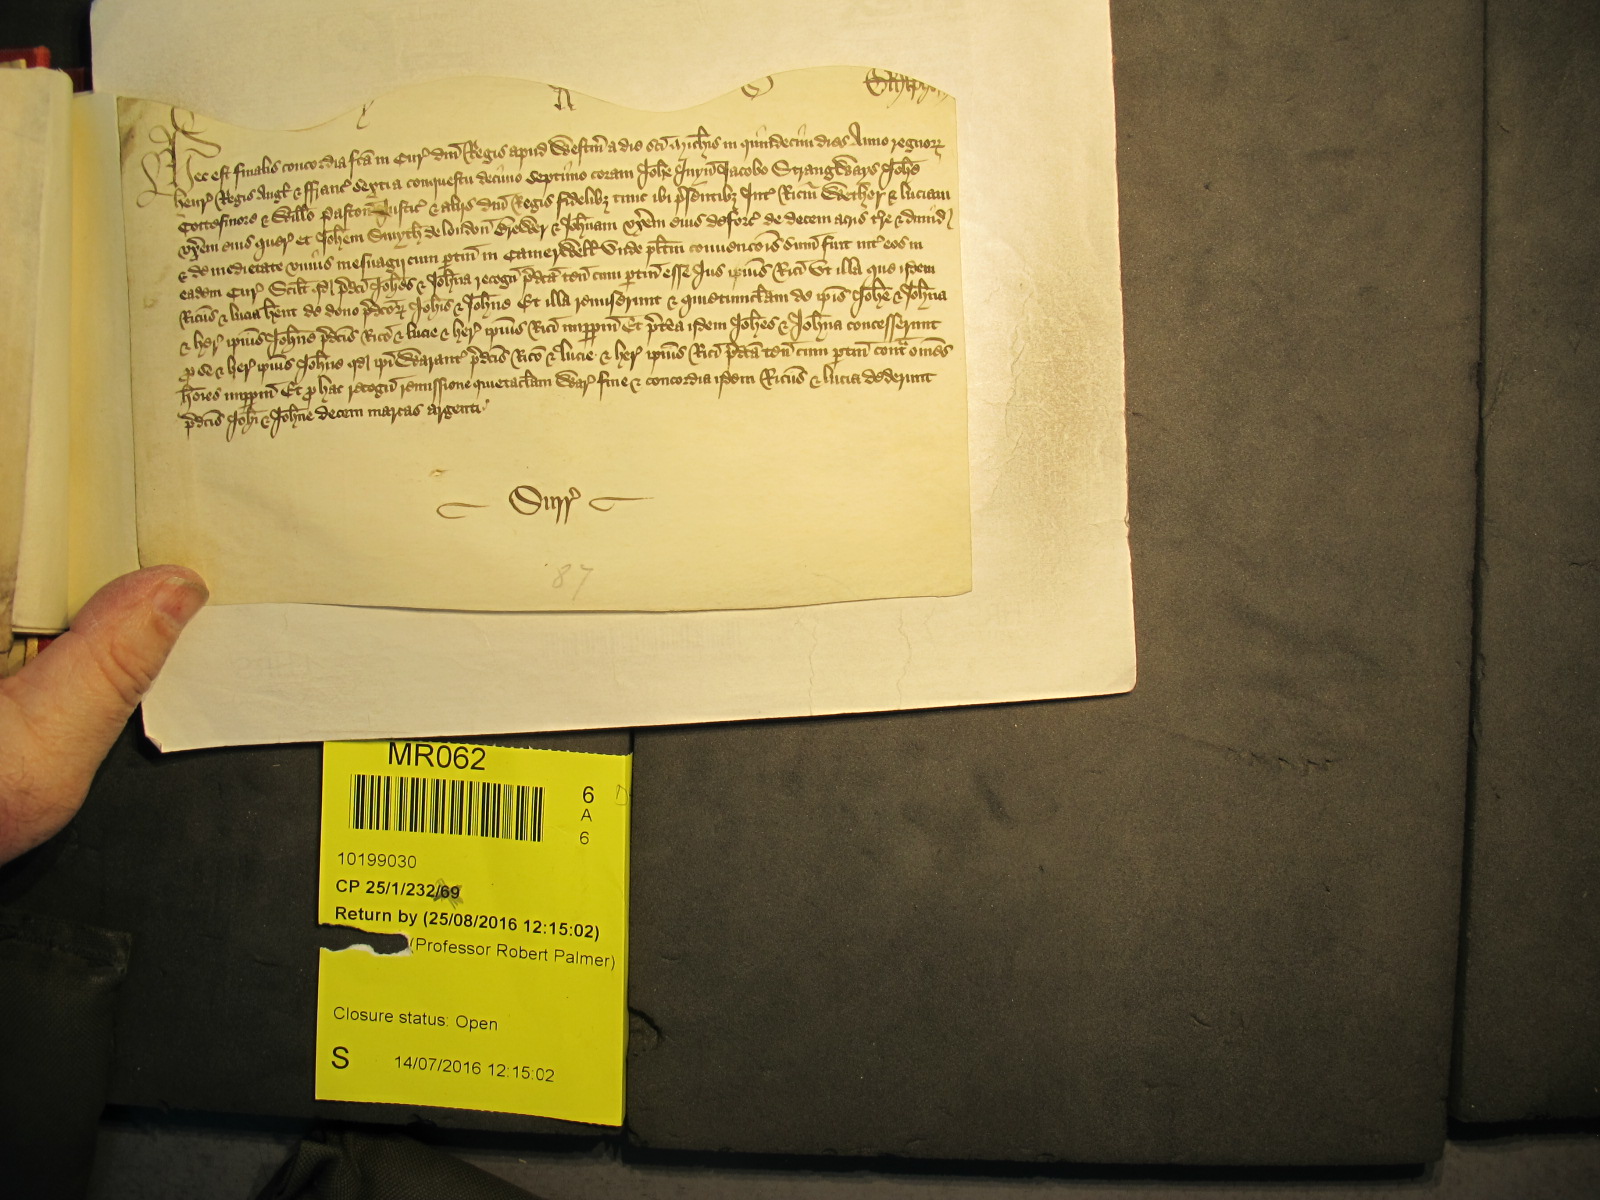 Hec est finalis concordia fc̃a in Cur̉ dñi Regis apud Westm̃ a die sc̃i Mich̃is in quindecim dies Anno regnoꝝ
Henr̉ Regis Angl̉ & Ffranc̉ sexti a conquestu decimo septimo coram Joh̃e Juyn̉ Jacobo Strangways Joh̃e
Cottesmore & Will̃o Paston Justic̉ & alijs dñi Regis fidelibȝ tunc ibi p̃sentibȝ Int̉ Ricm̃ & luciam
vx̃em eius quer̉ et Joh̃em Smyth de london̉ Brewer & Joh̃nam vx̃em eius deforc̉ de decem acris t̃re & dimid̉
& de medietate vnius mesuagij cum ptiñ in Camerwell̉ vnde pl̃itm conuenc̃ois sum̃ fuit int̉ eos in
eadem Cur̉ Scil̃t qd̉ p̃dc̃i Joh̃es & Joh̃na recogñ p̃dc̃a teñ cum ptiñ esse Jus ip̃ius Ric̃i vt illa que ijdem
Ric̃us & lucia h̃ent de dono p̃dc̃oꝝ Joh̃is & Joh̃ne Et illa remiserunt & quietumclam̃ de ip̃is Joh̃e & Joh̃na
& her̉ ip̃ius Joh̃ne p̃dc̃is Ric̃o & lucie & her̉ ip̃ius Ric̃i imppm̃ Et p̃t̃ea ijdem Joh̃es & Joh̃na concesserunt
p se & her̉ ip̃ius Joh̃ne qd̉ ip̃i Warant̉ p̃dc̃is Ric̃o & lucie & her̉ ip̃ius Ric̃i p̃dc̃a teñ cum ptiñ cont̃ om̃es
ho̊ies imppm̃ Et p hac recogñ remissione quietaclam̃ War̉ fine & concordia ijdem Ric̃us & lucia dederunt
p̃dc̃is Joh̃i & Joh̃ne decem marcas argenti
Surr̉
87
MR062
6
A
6
10199030
CP 25/1/232/69
Return by (25/08/2016 12:15:02)
(Professor Robert Palmer)
Closure status: Open
S 14/07/2016 12:15:02